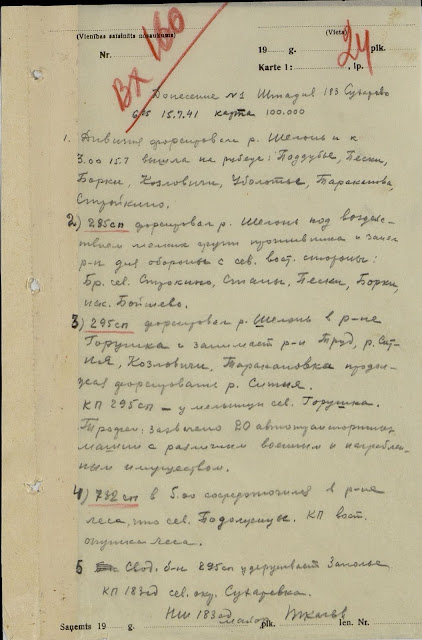 (Vienības saīsināts nosaukums)
(Vieta)
Nr.
Вх 160
19 g. plk.
24
Karte 1: lp.
Донесение №1 Штадив 183 Сухарево
6.05 15.7.41 карта 100.000
1. Дивизия форсировала р. Шелонь и к
3.00 15.7 вышла на рубеж: Поддубье, Пески,
Борки, Козловичи, Уболотье, Таракановка,
Строкино.
2) 285сп форсировал р. Шелонь под воздей-
ствием мелких групп противника и занял
р-н для обороны с сев. вост. стороны:
сев. Строкино, Пески, Борки,
иск.
3) 295сп форсировал р. Шелонь в р-не
Горушка и занимает р-н Труд, р. Сит-
ня, Козловичи, Таракановка продол-
жая форсирование р. Ситня.
КП 295сп – у мельницы сев. Горушка.
Трофеи: захвачено 20 автотранспортных
машин с различным военным и награблен-
ным имуществом.
4) 732сп в 5.00 сосредоточился в р-не
леса, что сев. КП вост.
опушка леса.
5 Свод. б-н 295сп удерживает Заполье
КП 183сд сев. окр. Сухаревка.
НШ 183сд
майор
Saņemts 19 g. plk. Ien. Nr.